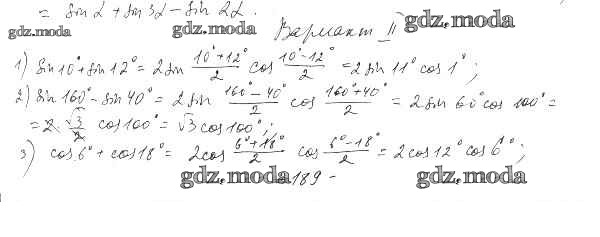 = sin α + sin 3α - sin 2α.
gdz.moda gdz.moda Вариант II gdz.moda
1) sin 10° + sin 12° = 2 sin (10°+12°)/2 cos (10°-12°)/2 = 2 sin 11° cos 1°;
2) sin 160° - sin 40° = 2 sin (160°-40°)/2 cos (160°+40°)/2 = 2 sin 60° cos 100° =
= 2 · √3/2 cos 100° = √3 cos 100°;
3) cos 6° + cos 18° = 2 cos (6°+18°)/2 cos (6°-18°)/2 = 2 cos 12° cos 6°;
gdz.moda - 189 - gdz.moda